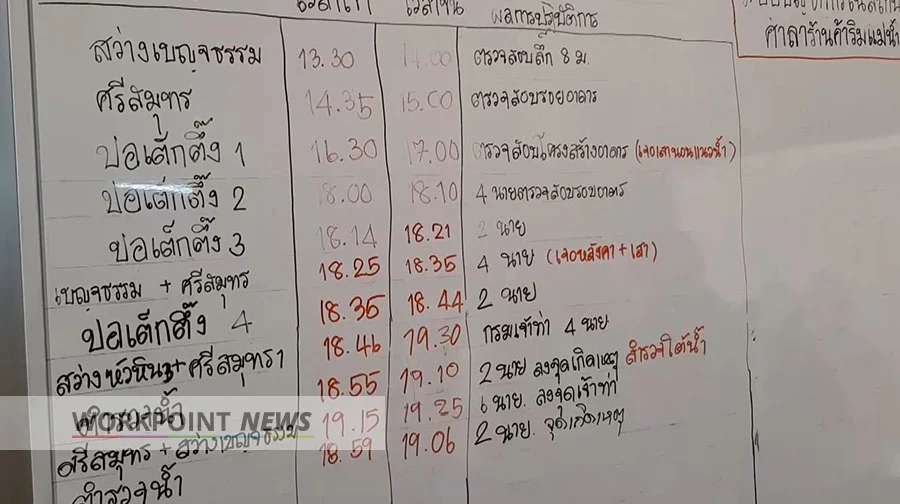 ผลการปฏิบัติการ
ศาลาร้านค้าริมแม่น้ำ
สว่างเบญจธรรม 13.30 14.00 ตรวจสอบลึก 8 ม.
ศรีสมุทร 14.35 15.00 ตรวจสอบรอยอาคาร
ป่อเต็กตึ๊ง 1 16.30 17.00 ตรวจสอบโครงสร้างอาคาร (เจอเสานอนแนวน้ำ)
ป่อเต็กตึ๊ง 2 18.00 18.10 4 นายตรวจสอบรอบอาคาร
ป่อเต็กตึ๊ง 3 18.14 18.21 2 นาย
เบญจธรรม + ศรีสมุทร 18.25 18.35 4 นาย (เจอหลังคา + เสา)
ป่อเต็กตึ๊ง 4 18.35 18.44 2 นาย
สว่างหัวหิน3+ศรีสมุทร1 18.46 19.30 กรมเจ้าท่า 4 นาย
18.55 19.10 2 นาย ลงจุดเกิดเหตุ สำรวจใต้น้ำ
ศรีสมุทร + สว่างเบญจธรรม 19.15 19.25 6 นาย. ลงจุดเจ้าท่า
ตำรวจน้ำ 18.59 19.06 2 นาย. จุดเกิดเหตุ
WORKPOINT NEWS